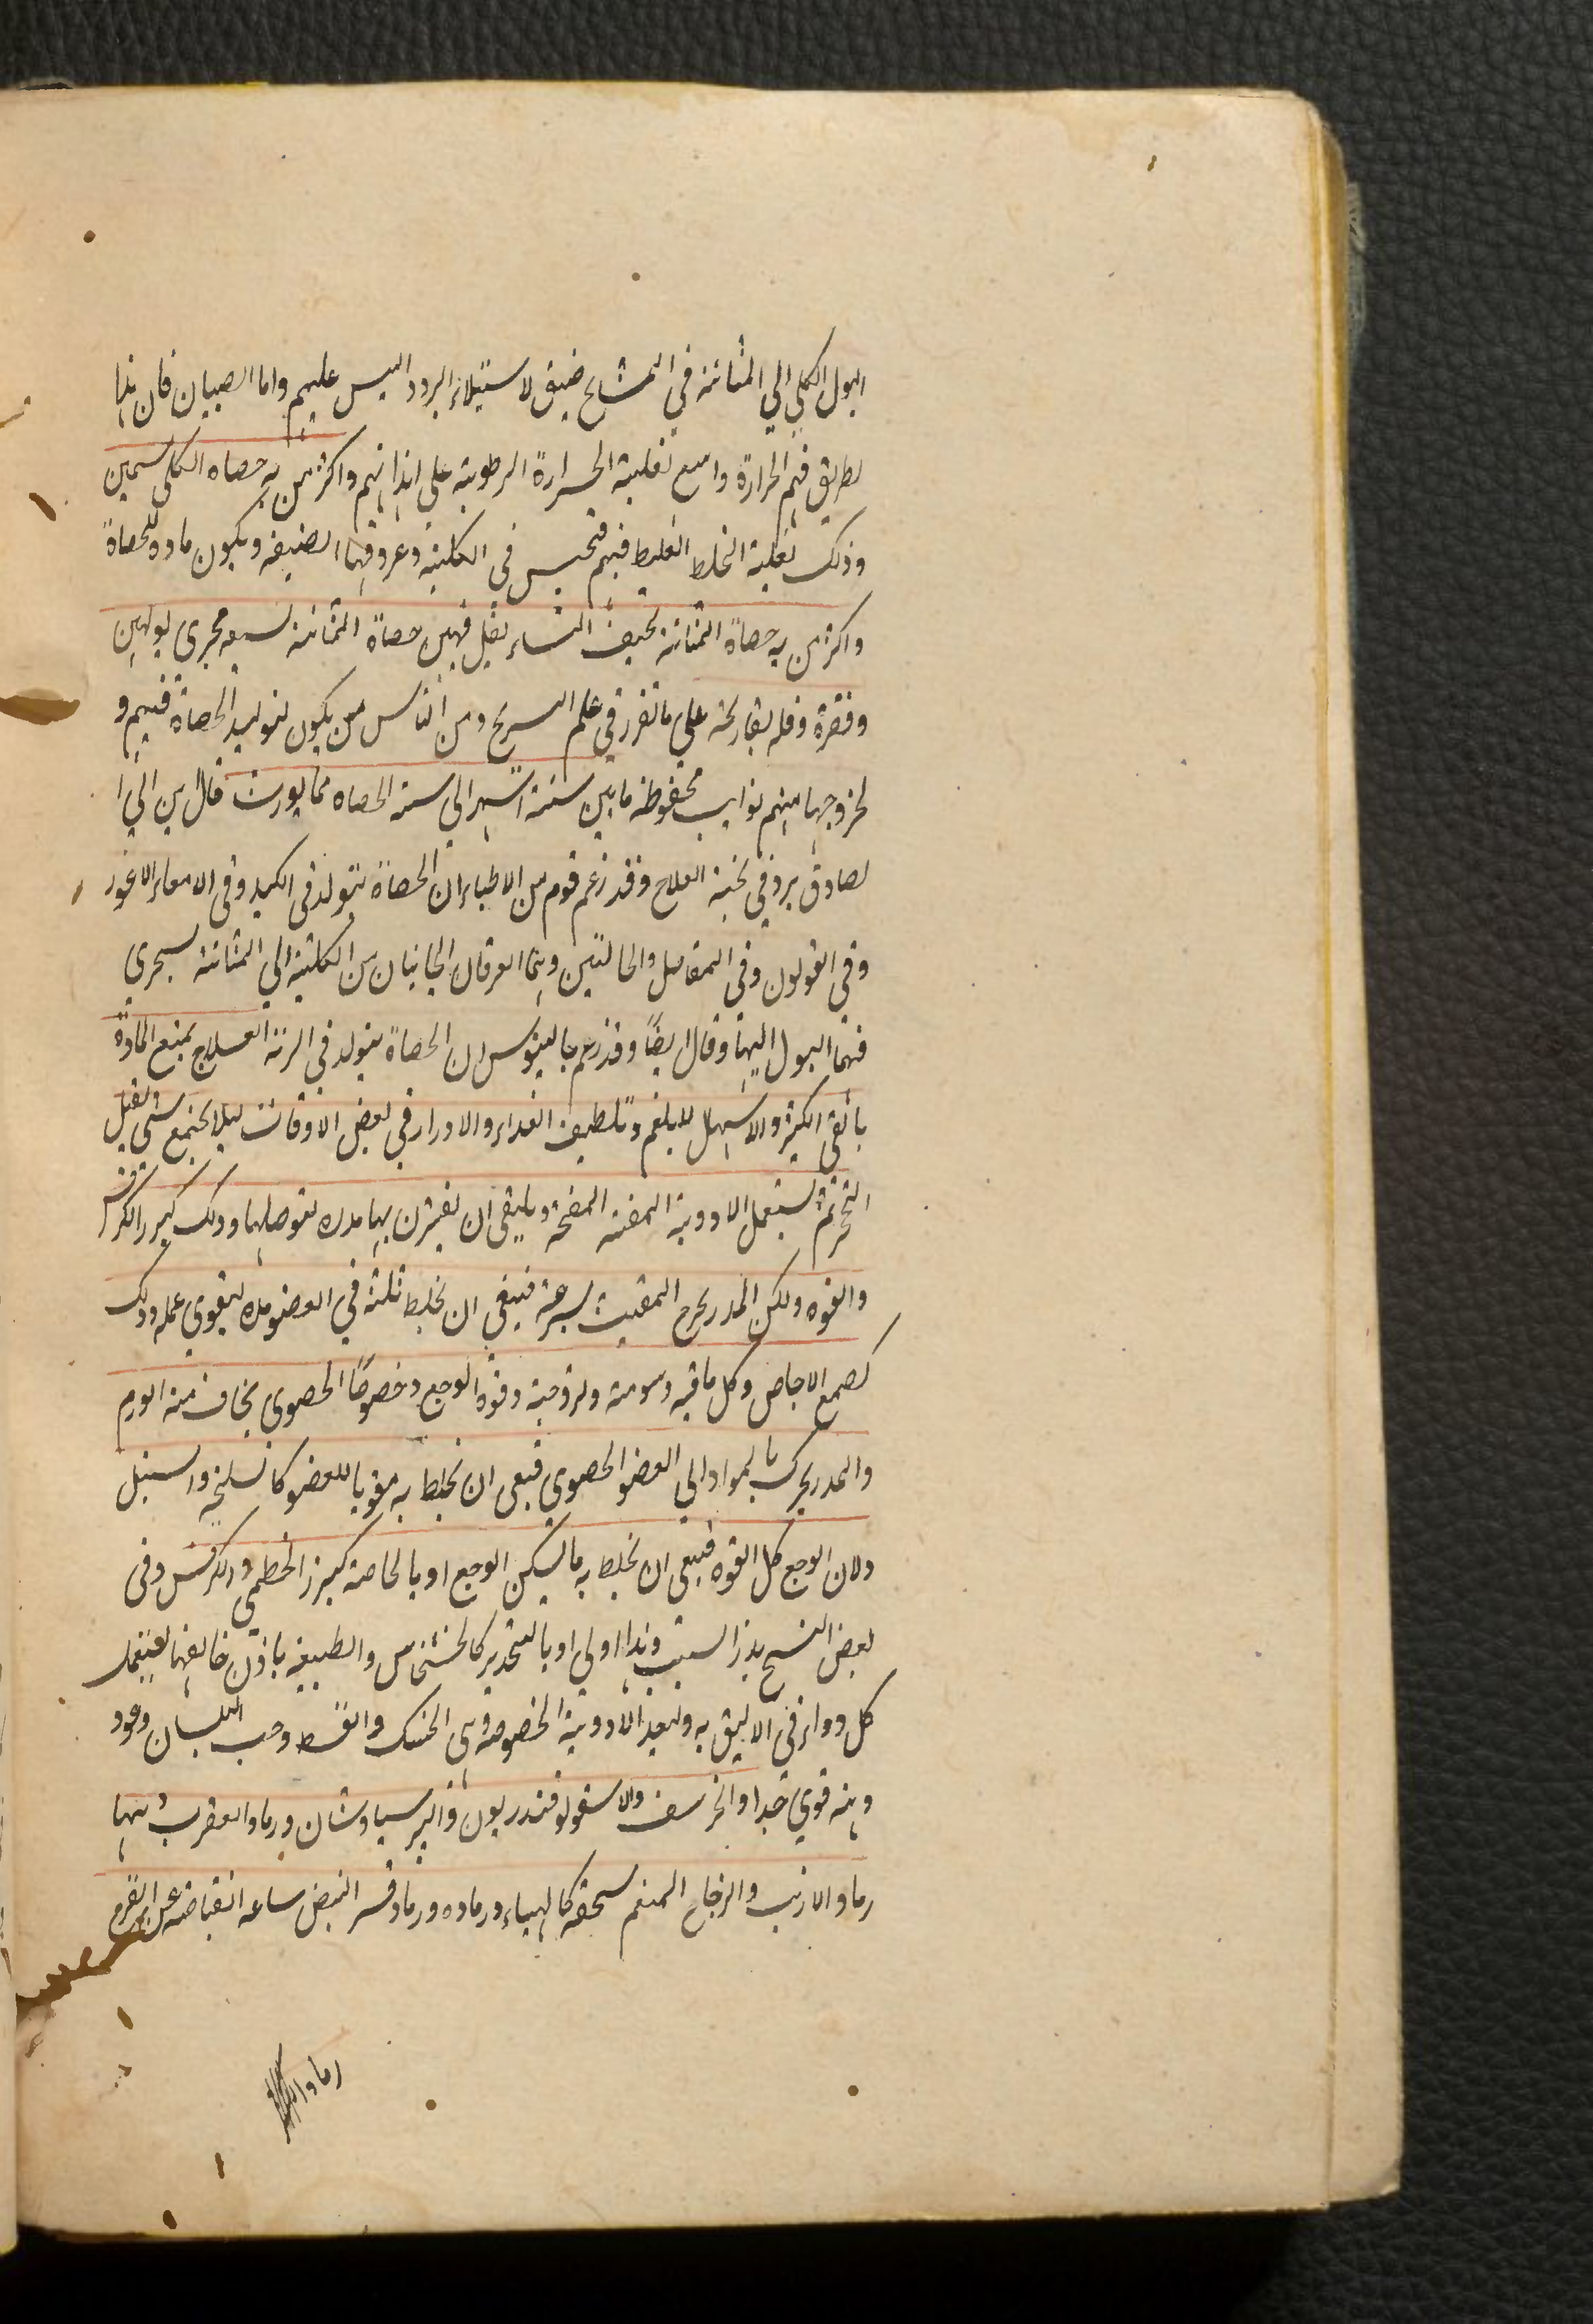 البول الكلي الي المثانة في المشايخ ضيق لاستيلاء البرد واليبس عليهم واما الصبيان فان هذا
لطريق فيهم الحرارة واسع لغلبة الحرارة الرطوبة علي ابدانهم واكثر من به حصاه الكلي سمين
وذلك لغلبة الخلط الغليظ فيهم فتحبس في الكلية وعروقها الضيقة ويكون مادة للحصاة
واكثر من به حصاة المثانة نحيف النساء يقل فيهن حصاة المثانة لسعه مجري بولهن
وقصرة وقله تعاريجه علي ما تقرر في علم التشريح ومن الناس من يكون لتوليد الحصاة فيهم و
لخروجها منهم نوايب محفوظة ما بين ستة اشهر الي سنه الحصاه مما يورث قال ابن ابي ا
لصادق يرد في نخبة العلاج وقد زعم قوم من الاطباء ان الحصاة تتولد في الكبد وفي الامعاء الاعور
وفي القولون وفي المفاصل والحالبين وهما العرقان الجانبان من الكلية الي المثانة يجري
فيهما البول اليها وقال ايضًا وقد زعم جالينوس ان الحصاة يتولد في الرئة العلاج بمنع المادة
بالقي الكثير والاسهال للبلغم وتلطيف الغداء والادرار في بعض الاوقات ليلا يجتمع شي يقبل
التحجر ثم تستعمل الادوية المفتته المفتحة ويليق ان يقترن بها مدره لتوصلها وذلك كبزر الكرفس
والفوه ولكن المدر يخرج المفتت بسرعة فينبغي ان يخلط ثلثة في العضو مده ليقوي عمله وذلك
كصمغ الاجاص وكل ما فيه دسومة ولزوجية وقوة الوجع وخصوصًا الحصوي يخاف منه الورم
والمدر يحرك بالمواد الي العضو الحصوي فينبغي ان يخلط به مقويا للعضو كالسليخه والسنبل
ولان الوجع كل القوه فينبغي ان يخلط به ما يسكن الوجع او بالخاصة كبزر الخطمي والكرفس وفي
بعض النسخ بدز الشبت وهذا اولي او بالتخدير كالخشخاش والطبيعة باذن خالقها يستعمل
كل دواء في الاليق به وليعد الادوية الخصوصة وهي الحسك والقسط وحب البلسان وعود
وهنه قوي جدا والخرشف والاسقولوفندريون والبرسياوشان ورماد العقرب ودهنها
رماد الارنب والزجاج المنعم سحقه كالهباء ورماده ورماد قشر البيض ساعه انقباضه عن الفرخ
رماد